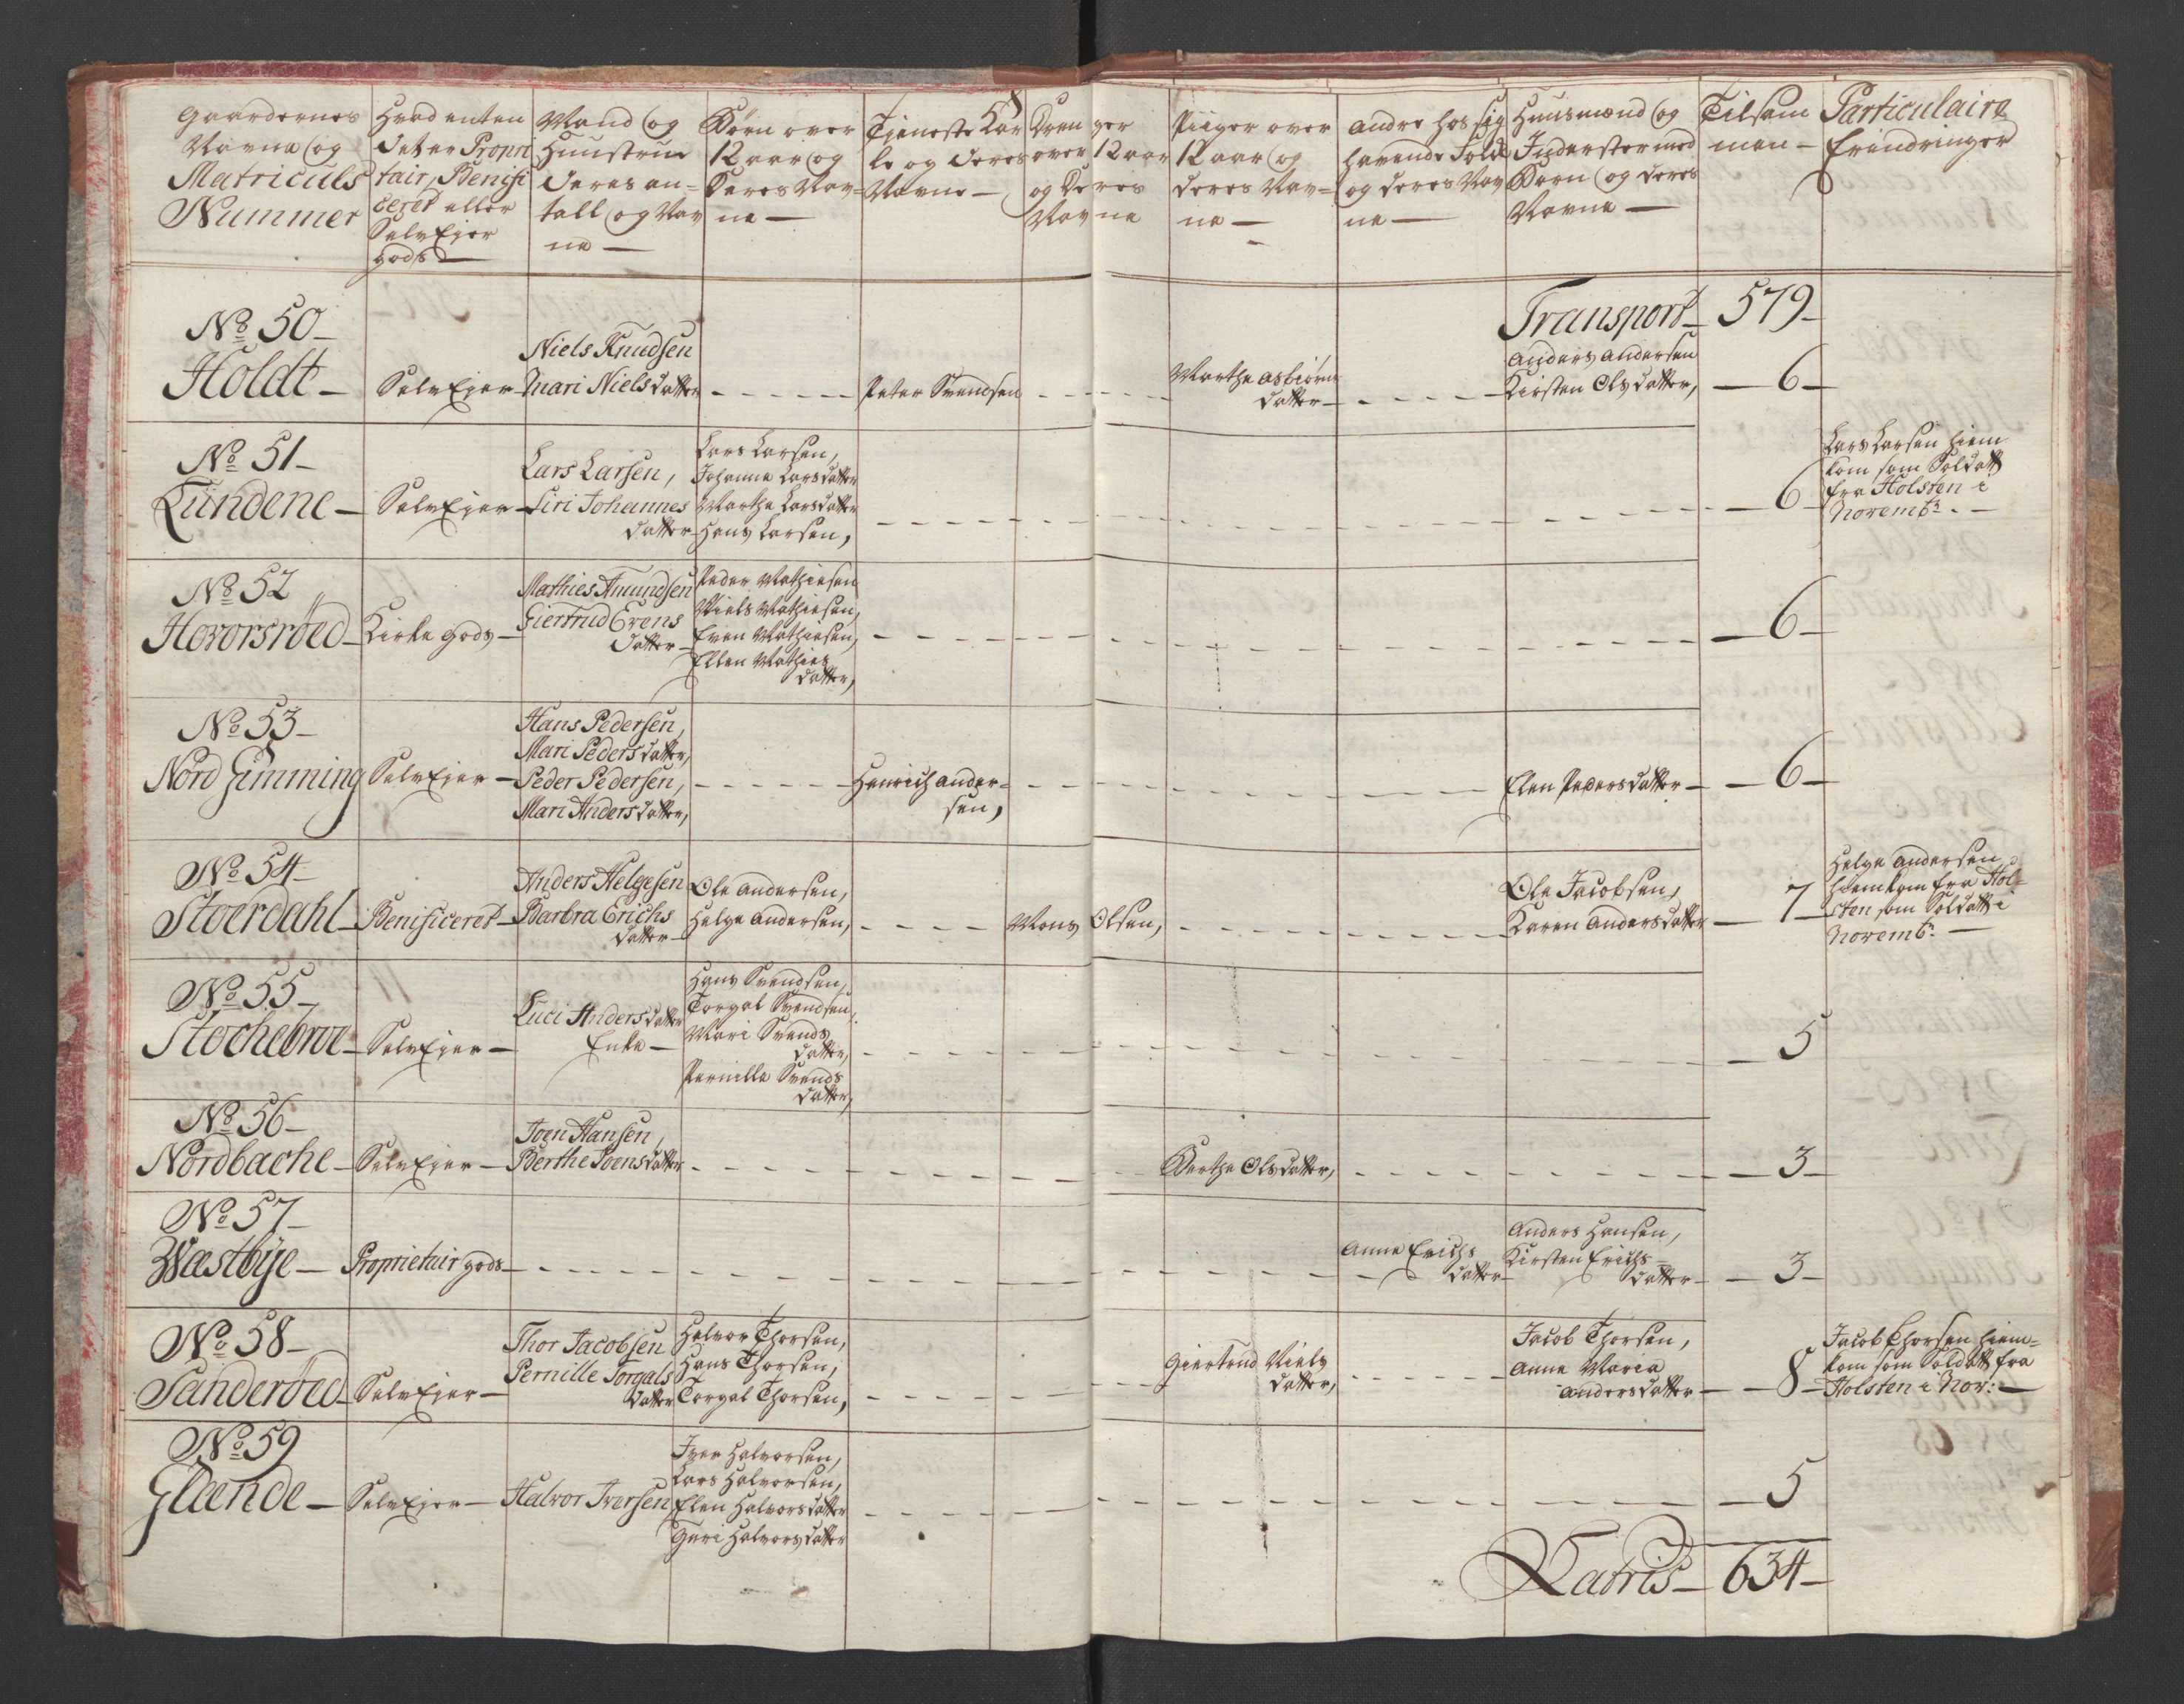 Gaardernes
Navne og
Matriculs
Nummer
Hvad enten
det er Propri
tair, Benifi
ceret eller
SelvEjer
Gods
Mand og
Huustrue
deres an=
tall og Nav
ne —
Børn over
12 aar og
deres Nav=
ne —
Tieneste Kar
le og deres
Navne —
Drenger
over 12 aar
og deres
Navne
Piiger over
12 aar og
deres Nav=
ne —
Andre hos sig
havende Folk
og deres Nav
ne —
Huusmænd og
Inderster med
Børn og deres
Navne —
Tilsam
men —
Particulaire
Erindringer
Transport — 579 —
No 50 —
Holdt —
SelvEjer —
Niels Knudsen
Mari Nielsdatter
Peter Svendsen
Marthe Asbiørns
datter —
Anders Andersen
Kirsten Olsdatter,
— 6 —
No 51 —
Lündene —
SelvEjer —
Lars Larsen,
Siri Johannes
datter
Lars Larsen,
Johanne Larsdatter
Marthe Larsdatter
Hans Larsen,
— 6 —
Lars Larsen hiem
kom som Soldatt
fra Holsten i
Novembr. —
No 52
Hovorsröed —
Kirke Gods —
Mathies Amundsen
Giertrud Evens
datter —
Peder Mathiesen
Niels Mathiesen,
Even Mathiesen,
Ellen Mathies
datter,
— 6 —
No 53 —
Nord Gimming
SelvEjer —
Hans Pedersen,
Mari Pedersdatter,
Peder Pedersen,
Mari Andersdatter,
Henrich Ander=
sen,
Elen Pedersdatter —
— 6 —
No 54 —
Stoerdahl —
Benificeret —
Anders Helgesen
Barbra Erichs
datter —
Ole Andersen,
Helge Andersen,
Mons Olsen,
Ole Jacobsen,
Karen Andersdatter
— 7 —
Helge Andersen
hiemkom fra Hol=
sten som Soldatt i
Novembr. —
No 55 —
Stochebroe —
SelvEjer —
Luci Andersdatter
Enke —
Hans Svendsen,
Torgal Svendsen,
Mari Svends
datter,
Pernille Svends
datter,
— 5
No 56 —
Nordbache —
SelvEjer —
Joen Hansen,
Berthe Joensdatter
Berthe Olsdatter,
— 3 —
No 57 —
Wæstbÿe —
Proprietair gods —
Anne Erichs
datter —
Anders Hansen,
Kirsten Erichs=
datter —
— 3 —
No 58 —
Sanderöed —
SelvEjer —
Thor Jacobsen
Pernille Torgals
datter
Halvor Thorsen,
Hans Thorsen,
Torgal Thorsen,
Giertrud Niels
datter,
Jacob Thorsen,
Anne Maria
Andersdatter —
— 8 —
Jacob Thorsen hiem=
kom som Soldatt fra
Holsten i Nov: —
No 59
Glænde —
SelvEjer —
Halvor Iversen
Iver Halvorsen,
Lars Halvorsen,
Elen Halvorsdatter
Guri Halvorsdatter
— 5
Latris — 634 —